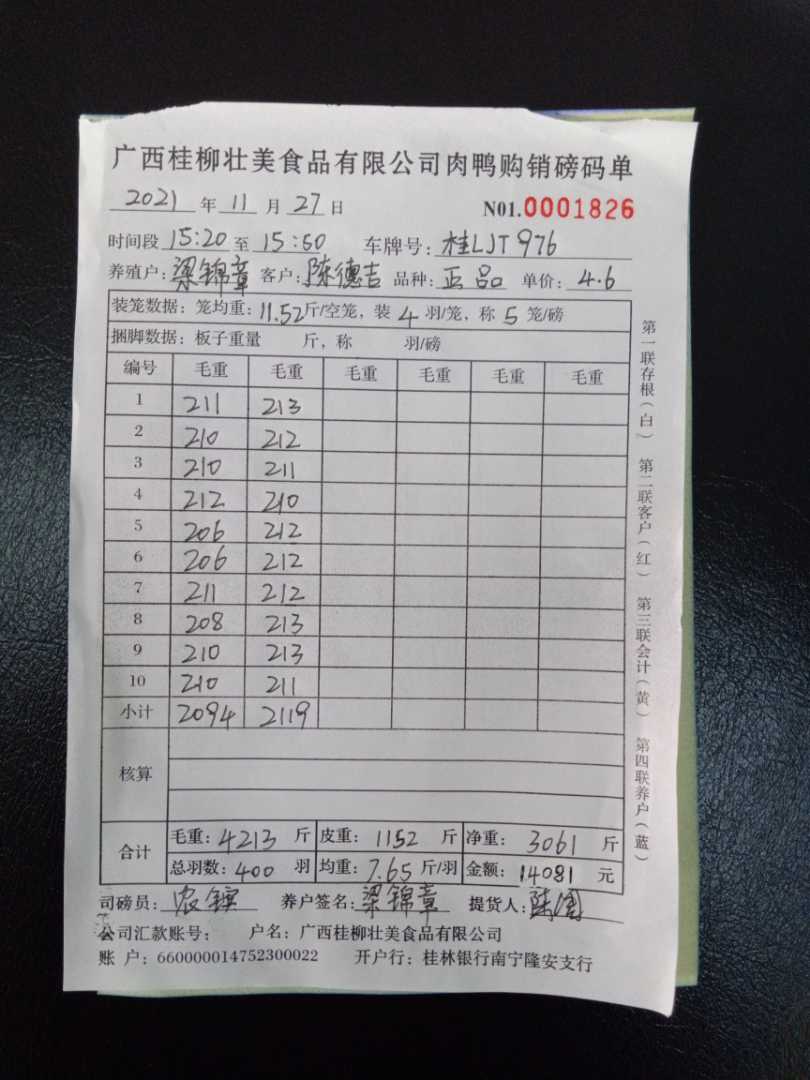 广西桂柳壮美食品有限公司肉鸭购销磅码单
2021 年 11 月 27 日 N01.0001826
时间段 15:20 至 15:50 车牌号: 桂LJT976
养殖户: 梁锦章 客户: 陈德吉 品种: 正品 单价: 4.6
装笼数据: 笼均重: 11.52斤/空笼, 装 4 羽/笼, 称 5 笼/磅
捆脚数据: 板子重量 斤, 称 羽/磅
编号 毛重 毛重 毛重 毛重 毛重 毛重
1 211 213
2 210 212
3 210 211
4 212 210
5 206 212
6 206 212
7 211 212
8 208 213
9 210 213
10 210 211
小计 2094 2119
核算
合计 毛重: 4213 斤 皮重: 1152 斤 净重: 3061 斤
总羽数: 400 羽 均重: 7.65 斤/羽 金额: 14081 元
司磅员: 养户签名: 梁锦章 提货人:
公司汇款账号: 户名: 广西桂柳壮美食品有限公司
账 户: 660000014752300022 开户行: 桂林银行南宁隆安支行
第一联存根(白) 第二联客户(红) 第三联会计(黄) 第四联养户(蓝)